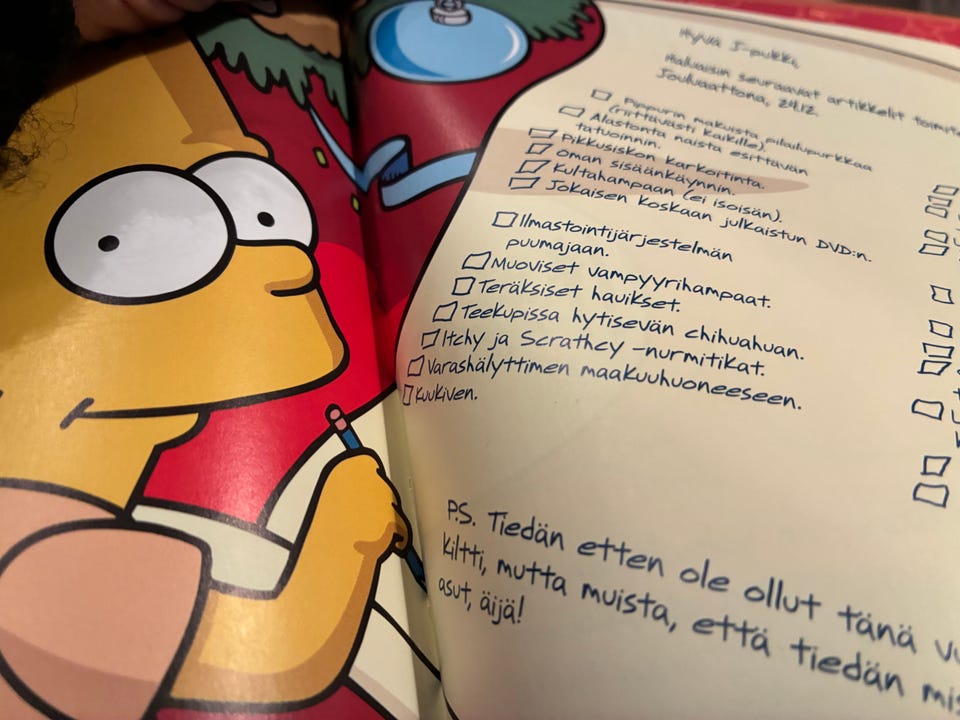 Hyvä J-pukki,
Haluaisin seuraavat artikkelit
Jouluaattona, 24.12.
Pippurin makuista pilailupurkkaa
(riittävästi kaikille).
Alastonta naista esittävän
tatuoinnin.
Pikkusiskon karkoitinta.
Oman sisäänkäynnin.
Kultahampaan (ei isoisän).
Jokaisen koskaan julkaistun DVD:n.
Ilmastointijärjestelmän
puumajaan.
Muoviset vampyyrihampaat.
Teräksiset hauikset.
Teekupissa hytisevän chihuahuan.
Itchy ja Scrathcy -nurmitikat.
Varashälyttimen maakuuhuoneeseen.
Kuukiven.
P.S. Tiedän etten ole ollut tänä
kiltti, mutta muista, että tiedän
asut, äijä!